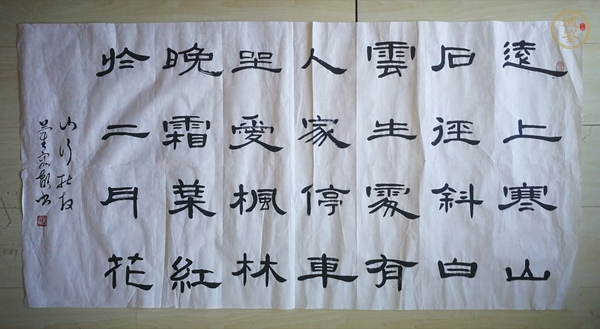 遠上寒山
石徑斜白
雲生處有
人家停車
坐愛楓林
晚霜葉紅
於二月花
山行 杜牧
书